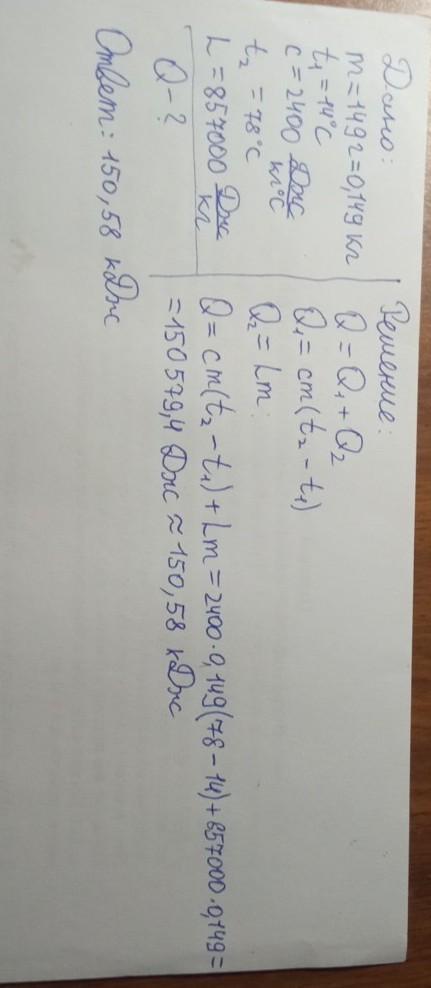 Дано:
m = 149 г = 0,149 кг
t₁ = 14°C
c = 2400 Дж/кг°C
t₂ = 78°C
L = 857000 Дж/кг
Q – ?
Решение:
Q = Q₁ + Q₂
Q₁ = cm(t₂ – t₁)
Q₂ = Lm
Q = cm(t₂ – t₁) + Lm = 2400·0,149(78 – 14) + 857000·0,149 =
= 150579,4 Дж ≈ 150,58 кДж
Ответ: 150,58 кДж